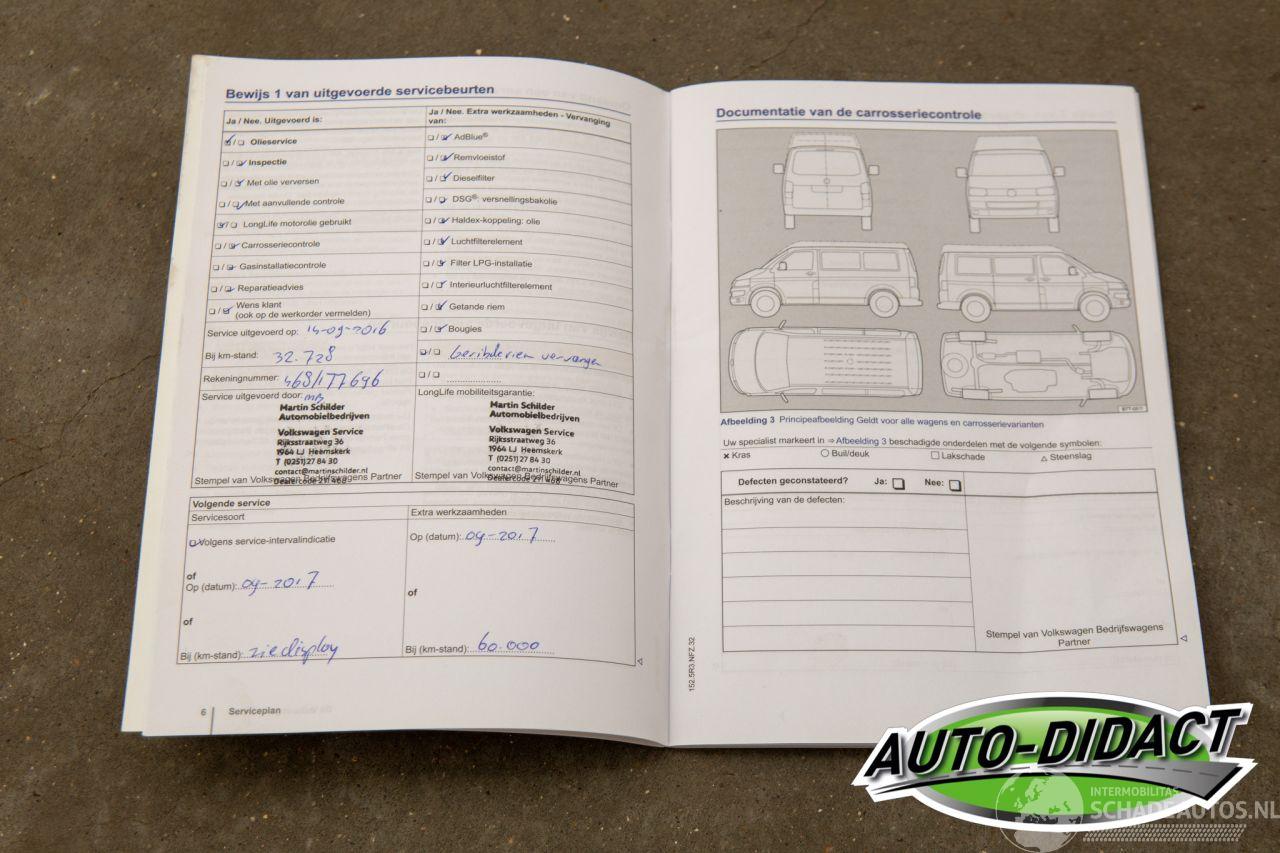 Bewijs 1 van uitgevoerde servicebeurten
Ja / Nee. Uitgevoerd is:
Olieservice
Inspectie
Met olie verversen
Met aanvullende controle
LongLife motorolie gebruikt
Carrosseriecontrole
Gasinstallatiecontrole
Reparatieadvies
Wens klant
(ook op de werkorder vermelden)
Service uitgevoerd op: 14-09-2016
Bij km-stand: 32.728
Rekeningnummer:
Service uitgevoerd door: MB
Martin Schilder
Automobielbedrijven
Volkswagen Service
Rijksstraatweg 36
1964 LJ Heemskerk
T (0251) 27 84 30
contact@martinschilder.nl
Dealercode 271 468
Stempel van Volkswagen Bedrijfswagens Partner
Ja / Nee. Extra werkzaamheden - Vervanging
van:
AdBlue®
Remvloeistof
Dieselfilter
DSG®: versnellingsbakolie
Haldex-koppeling: olie
Luchtfilterelement
Filter LPG-installatie
Interieurluchtfilterelement
Getande riem
Bougies
vervangen
LongLife mobiliteitsgarantie:
Martin Schilder
Automobielbedrijven
Volkswagen Service
Rijksstraatweg 36
1964 LJ Heemskerk
T (0251) 27 84 30
contact@martinschilder.nl
Dealercode 271 468
Stempel van Volkswagen Bedrijfswagens Partner
Volgende service
Servicesoort
Volgens service-intervalindicatie
of
Op (datum): 09-2017
of
Bij (km-stand): zie display
Extra werkzaamheden
Op (datum): 09-2017
of
Bij (km-stand): 60.000
6 Serviceplan
Documentatie van de carrosseriecontrole
Afbeelding 3 Principeafbeelding Geldt voor alle wagens en carrosserievarianten
Uw specialist markeert in ⇒ Afbeelding 3 beschadigde onderdelen met de volgende symbolen:
× Kras ○ Buil/deuk □ Lakschade △ Steenslag
Defecten geconstateerd? Ja: Nee:
Beschrijving van de defecten:
Stempel van Volkswagen Bedrijfswagens
Partner
152.5R3.NFZ.32
AUTO-DIDACT
INTERMOBILITAS
SCHADEAUTOS.NL